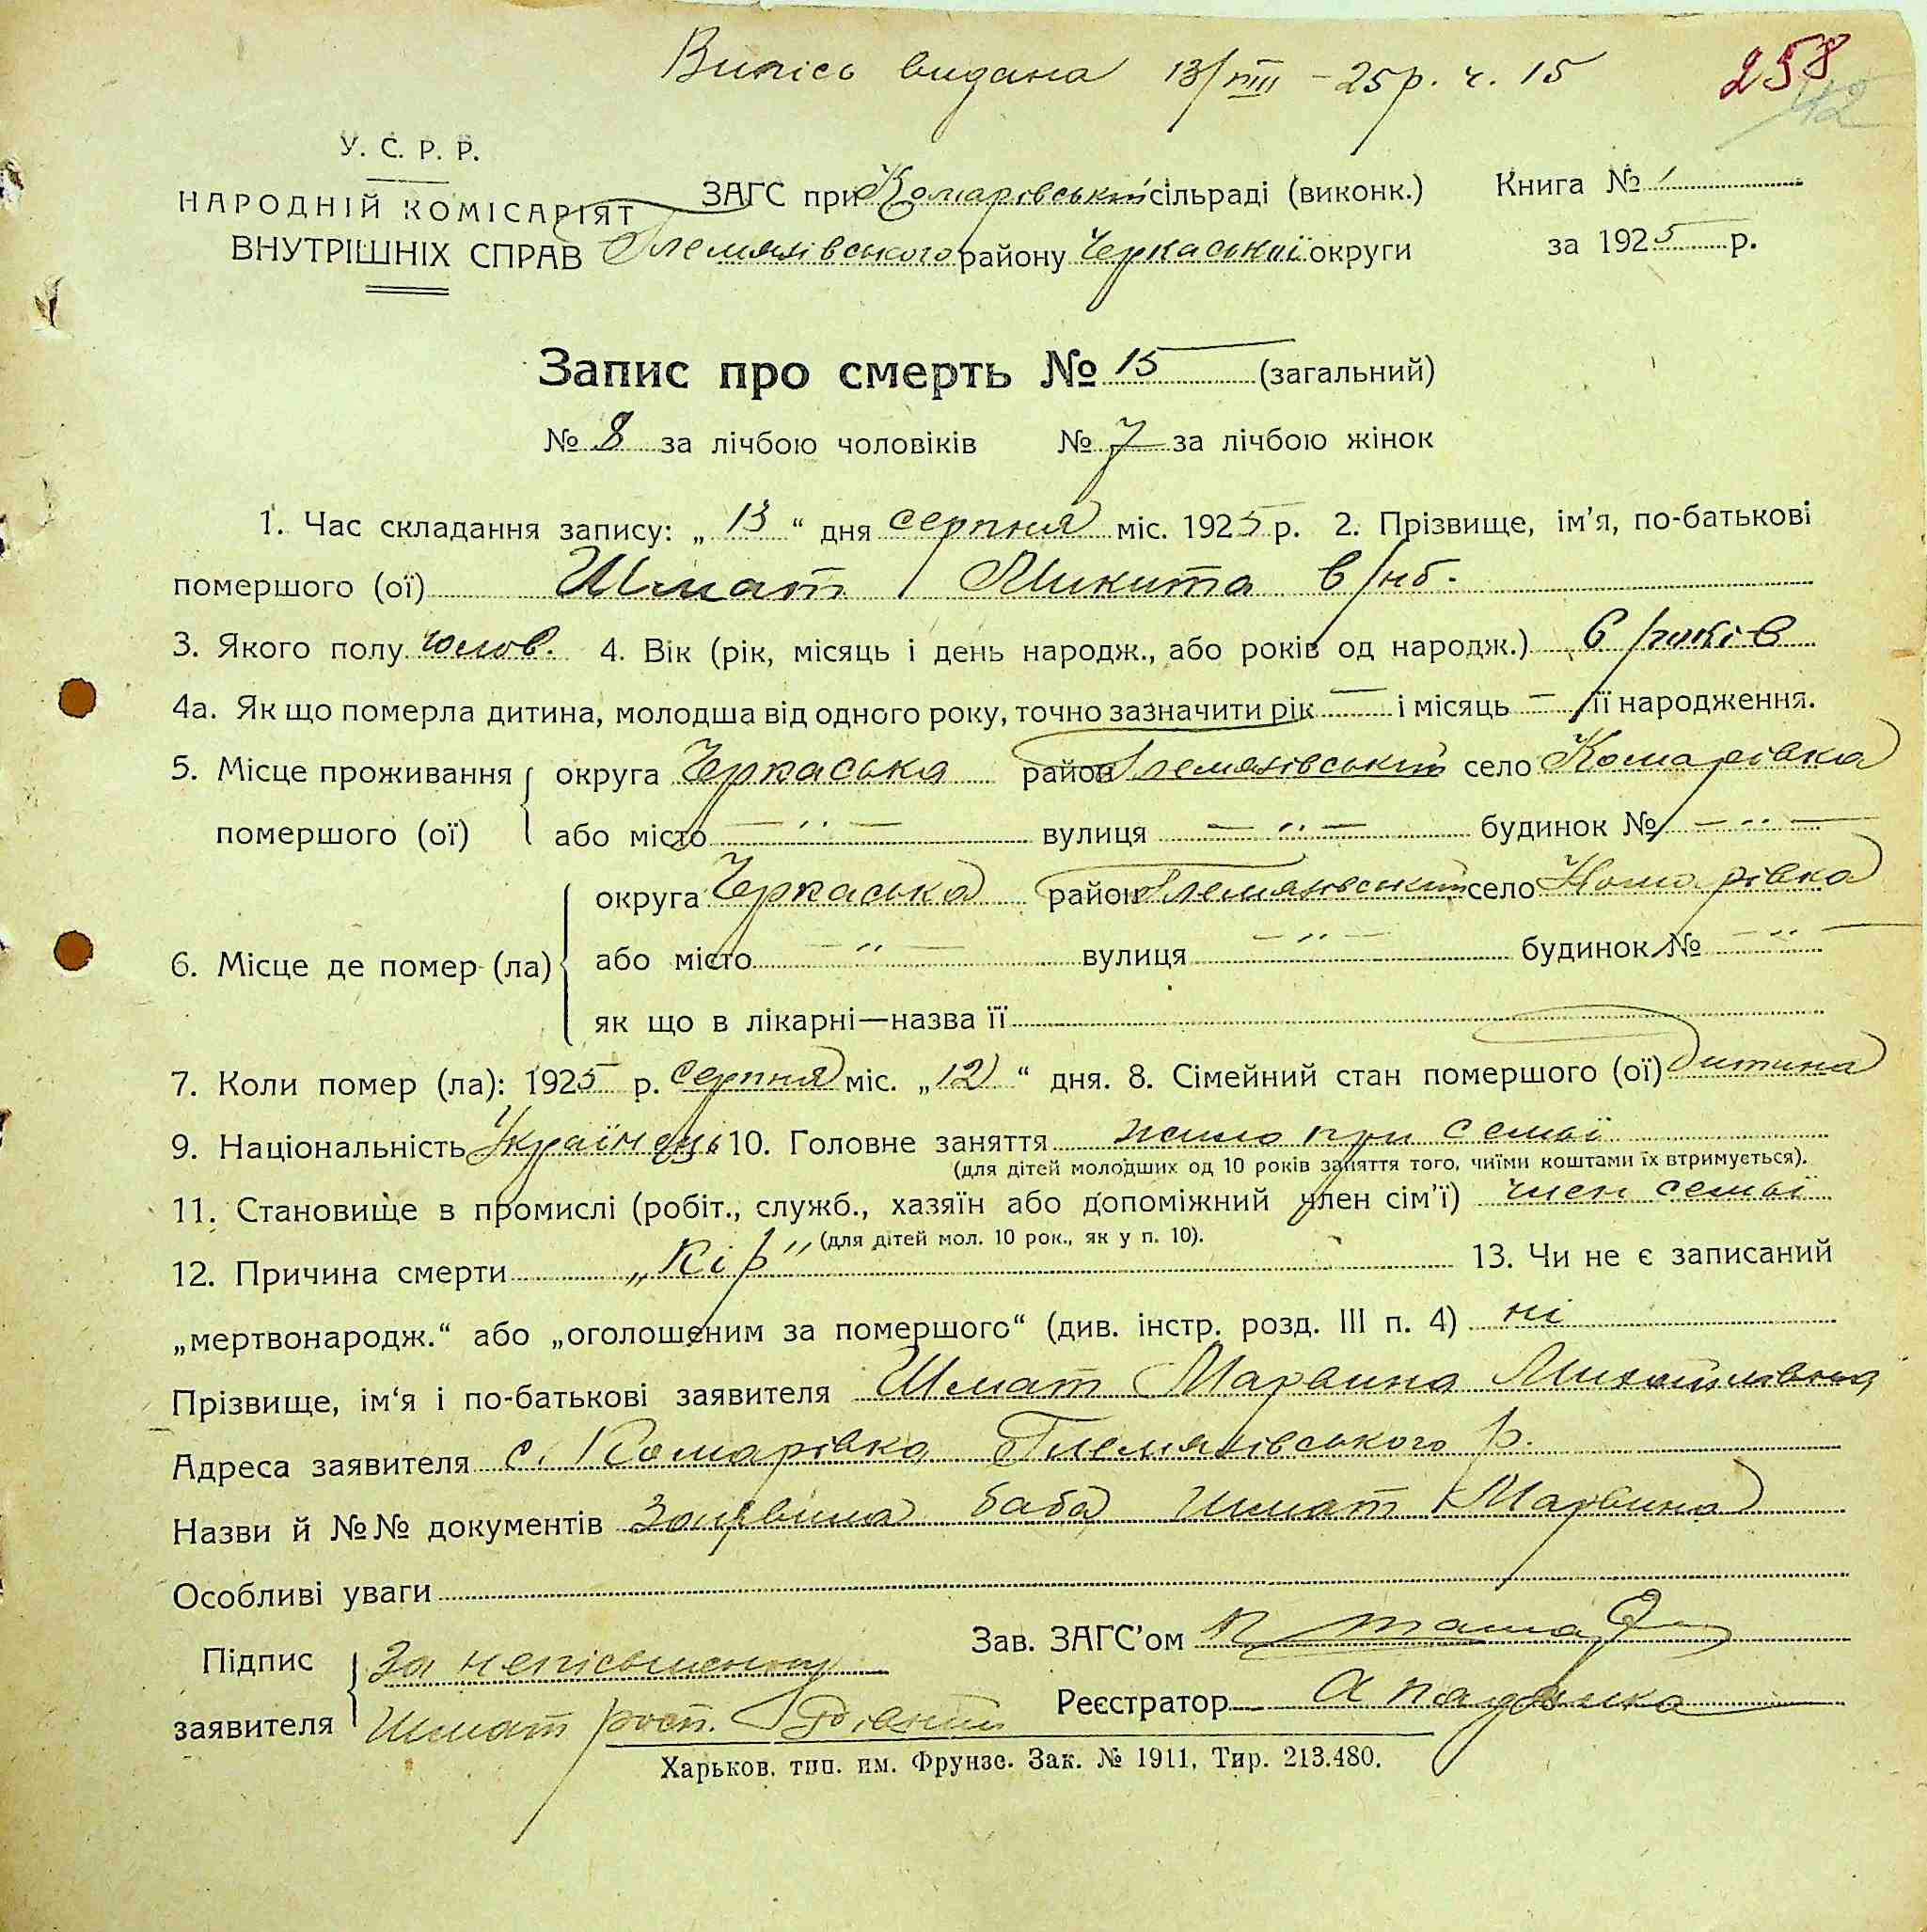 Випісь видана 13/VIII – 25 р. ч. 15
258
42
У. С. Р. Р.
НАРОДНІЙ КОМІСАРІЯТ
ВНУТРІШНІХ СПРАВ
ЗАГС при Комарівській сільраді (виконк.)
Книга № 1
району Черкаської округи
за 1925 р.
Запис про смерть № 15 (загальний)
№ 8 за лічбою чоловіків № 7 за лічбою жінок
1. Час складання запису: „ 13 “ дня серпня міс. 1925 р. 2. Прізвище, ім’я, по-батькові
помершого (ої) Шмат Микита
3. Якого полу чолов. 4. Вік (рік, місяць і день народж., або років од народж.) 6 років
4а. Як що померла дитина, молодша від одного року, точно зазначити рік — і місяць — її народження.
5. Місце проживання округа Черкаська район село Комарівка
помершого (ої) або місто — " — вулиця — " — будинок № — " —
округа Черкаська район село Комарівка
6. Місце де помер (ла) або місто — " — вулиця — " — будинок № — " —
як що в лікарні—назва її
7. Коли помер (ла): 1925 р. серпня міс. „12“ дня. 8. Сімейний стан помершого (ої) Дитина
9. Національність Українець 10. Головне заняття жило при семьї
(для дітей молодших од 10 років заняття того, чиїми коштами їх втримується).
11. Становище в промислі (робіт., служб., хазяїн або допоміжний член сім’ї) член семьї
(для дітей мол. 10 рок., як у п. 10).
12. Причина смерти „Кір" 13. Чи не є записаний
„мертвонародж.“ або „оголошеним за помершого“ (див. інстр. розд. III п. 4) ні
Прізвище, ім‘я і по-батькові заявителя Шмат Марвина Михайливна
Адреса заявителя с. Комарівка р.
Назви й №№ документів Заявила баба Шмат Марвина
Особливі уваги
Зав. ЗАГС’ом
Підпис
заявителя
За неписьменну
Шмат росп.
Реєстратор
Харьков, тип. им. Фрунзе. Зак. № 1911, Тир. 213.480.